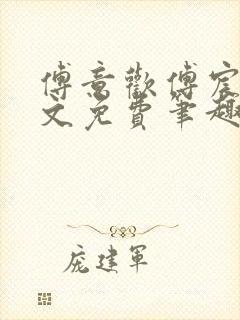 傅意欢傅宸
文免费笔趣
庞建军